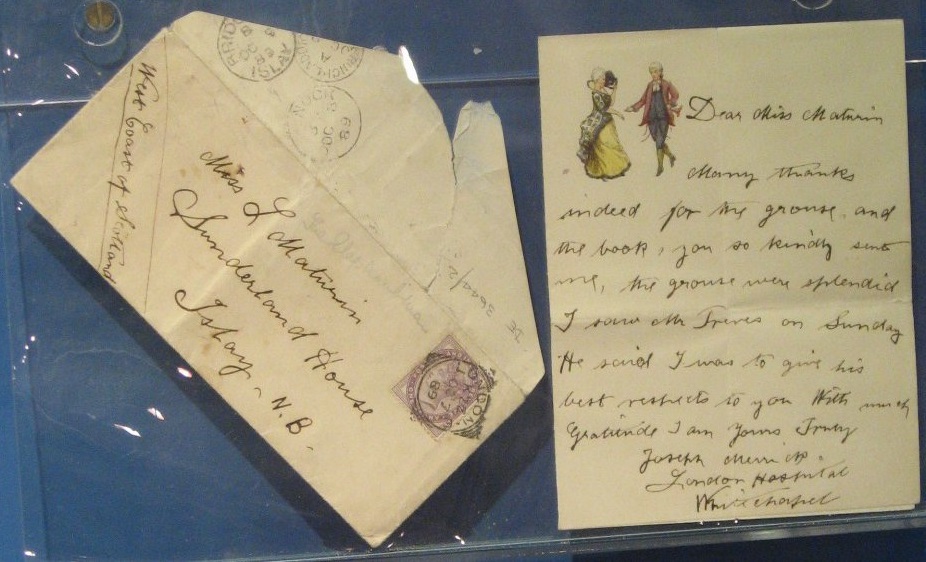 West Coast of Scotland
Miss L Maturin
Sunderland House
Islay, N.B.
LONDON
89
Dear Miss Maturin
Many thanks
indeed for the grouse and
the book, you so kindly sent
me, the grouse were splendid
I saw Mr Treves on Sunday
He said I was to give his
best respects to you With much
Gratitude I am Yours Truly
Joseph Merrick.
London Hospital
Whitechapel